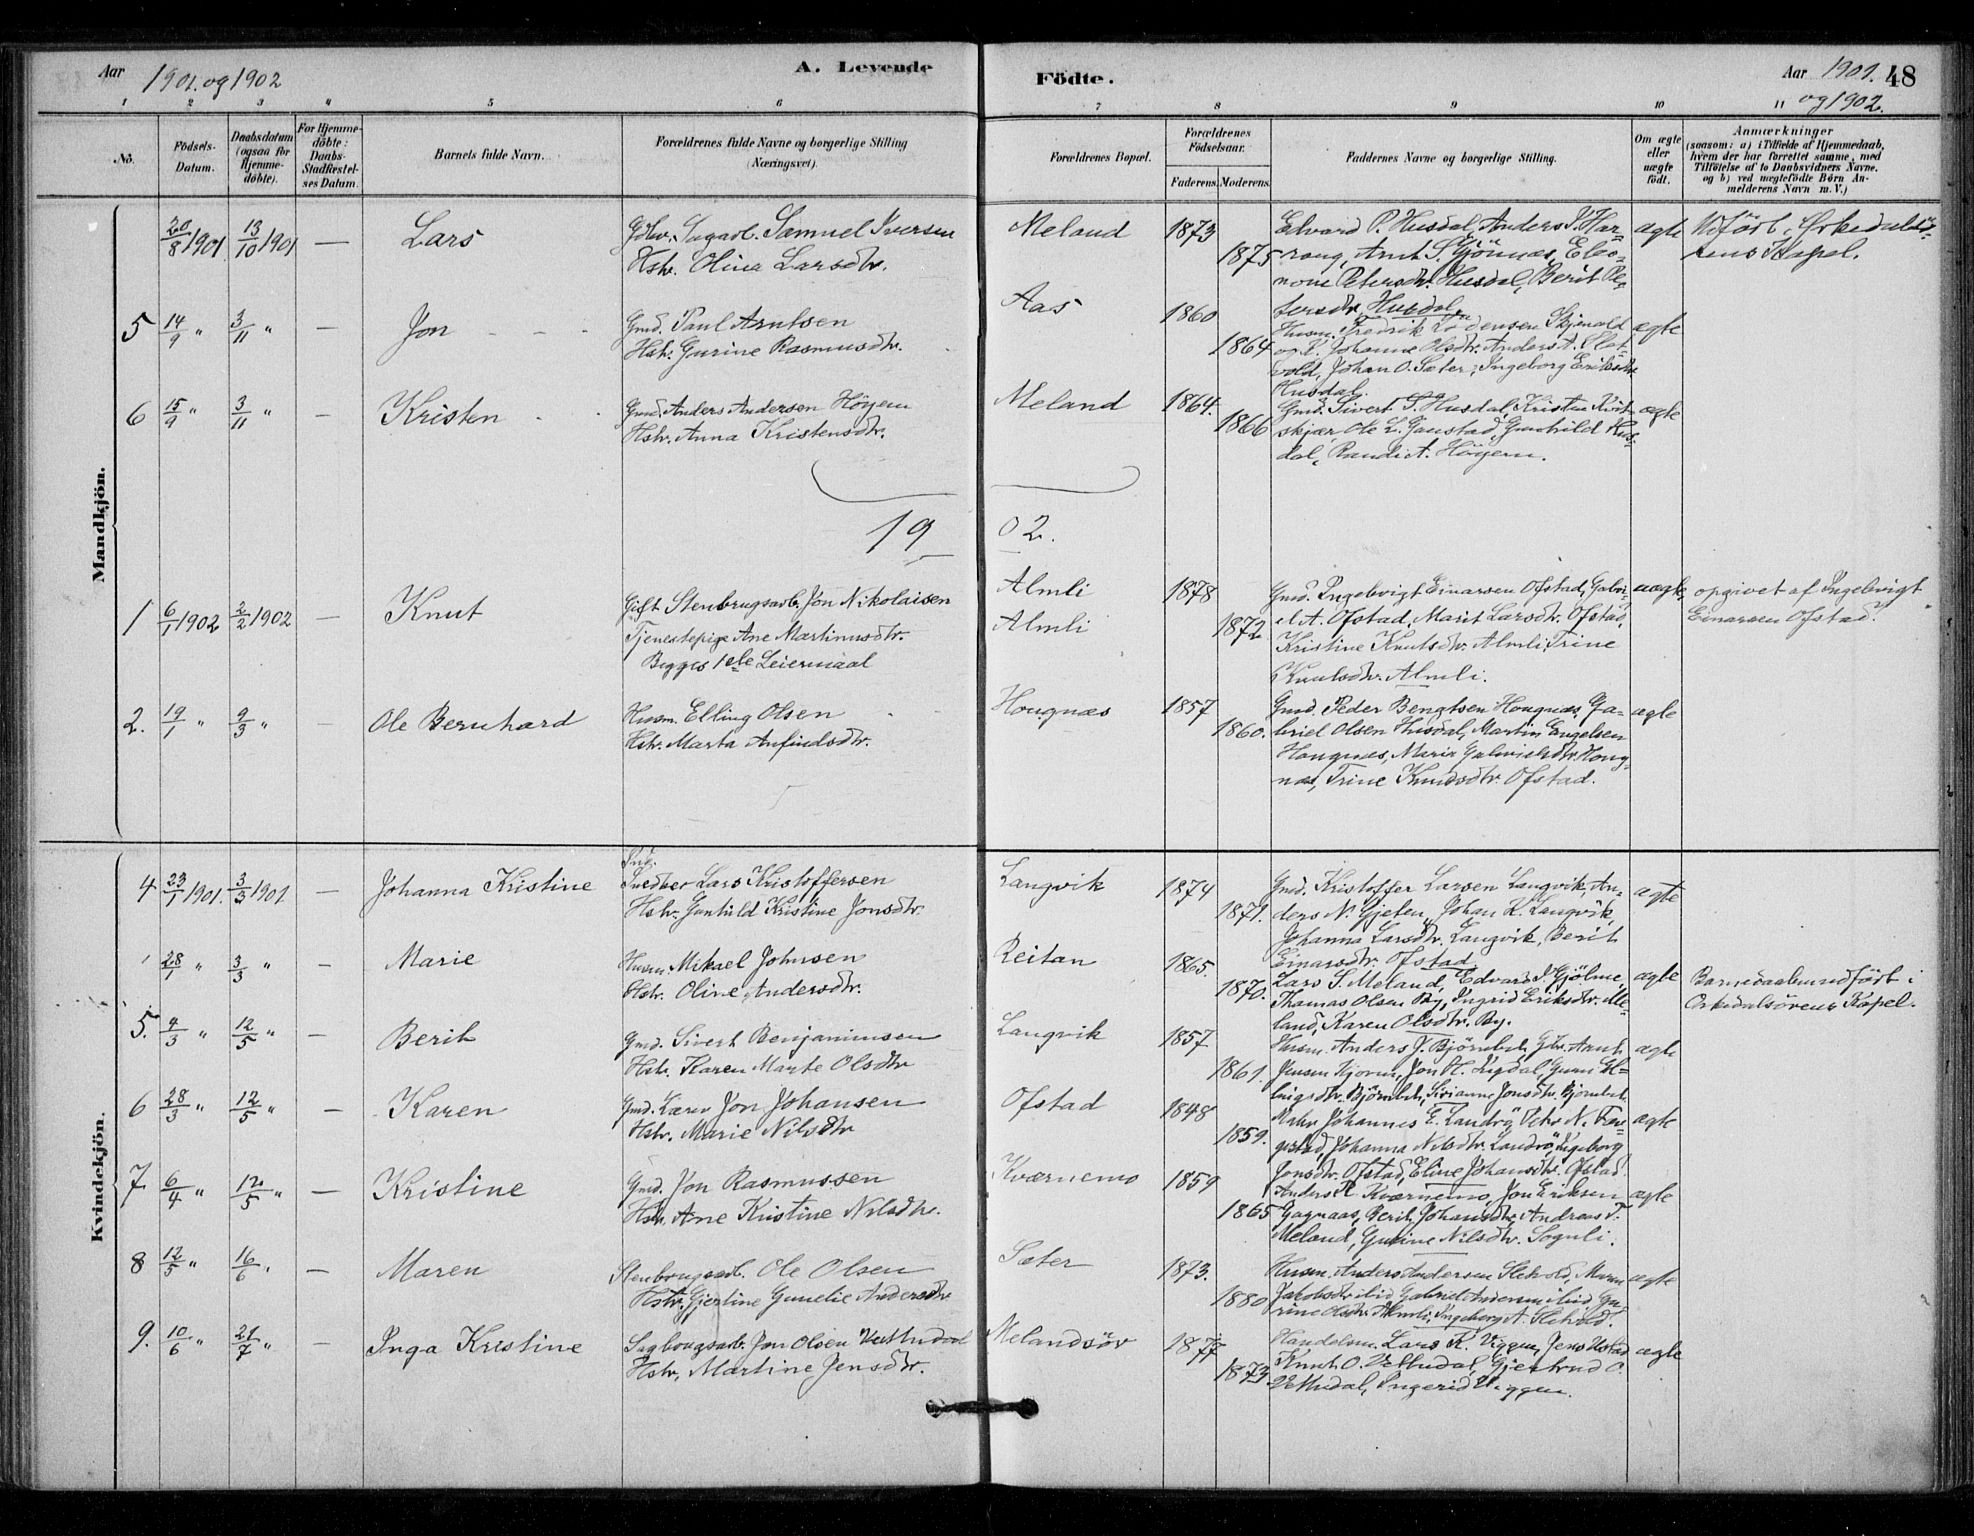 Aar 1901. og 1902
A. Levende
Födte.
Aar 1901. 48
og 1902.
1 2 3 4 5 6 7 8 9 10 11
No.
Födsels-
Datum.
Daabsdatum
(ogsaa for
Hjemme-
döbte).
For Hjemme-
döbte:
Daabs-
Stadfæstel-
ses Datum.
Barnets fulde Navn.
Forældrenes fulde Navne og borgerlige Stilling
(Næringsvei).
Forældrenes Bopæl.
Forældrenes
Födselsaar.
Faderens. Moderens.
Faddernes Navne og borgerlige Stilling.
Om ægte
eller
uægte
födt.
Anmærkninger
(saasom: a) i Tilfælde af Hjemmedaab,
hvem der har forrettet samme, med
Tilföielse af to Daabsvidners Navne.
og b) ved uægtefödte Börn An-
melderens Navn m. V.)
Mandkjön.
20/8 1901. 13/10 1901 — Lars
Samuel Iversen
Hstr. Olina Larsdtr.
Meland 1873 1875
Edvard P. Husdal, Anders
Arnt S. Gjönnes,
Petersdtr. Husdal, Berit Pe-
tersdtr. Husdal
ægte
Kapel.
5 14/9 " 3/11 " — Jon
Gmd. Paul Arntsen
Hstr. Gurine Rasmusdtr.
Aas 1860 1864
Husm. Fredrik
Johanne Olsdtr. Anders A.
Johan O. Sæter, Ingeborg Eriksdtr.
Husdal.
ægte
6 15/9 " 3/11 " — Kristen
Gmd. Anders Andersen Höyem
Hstr. Anna Kristensdtr.
Meland 1864. 1866
Gmd. Sivert S. Husdal, Kristen
Ole L. Ganstad, Gunhild Hus-
dal, Randi A. Höyem.
ægte
1902.
1 6/1 1902 2/2 1902 — Knut
Gift Stenbrugsarb. Jon Nikolaisen
Tjenestepige Ane Martinusdtr.
Begges 1ste Leiermaal
Almli
Almli
1878 1872
Gmd. Ingebrigt Einarsen Ofstad, Gabri-
el A. Ofstad, Marit Larsdtr. Ofstad,
Kristine Knutsdtr. Almli, Trine
Knutsdtr. Almli.
uægte,
opgivet af Ingebrigt
Einarsen Ofstad.
2. 19/1 " 9/3 " — Ole Bernhard
Husm. Elling Olsen
Hstr. Marta Anfindsdtr.
Hongnæs 1857 1860.
Gmd. Peder Bengtsen Hongnæs, Ga-
briel Olsen Husdal, Martin Engelsen
Hongnæs, Marie Gabrielsdtr. Hong-
næs, Trine Knudsdtr. Ofstad.
ægte
Kvindekjön.
4 23/1 1901. 3/3 1901. — Johanna Kristine
Lars Kristoffersen
Hstr. Gunhild Kristine Jonsdtr.
Langvik 1874 1871.
Gmd. Kristoffer Larsen Langvik, An-
ders N. Gjeten, Johan K. Langvik,
Johanna Larsdtr. Langvik, Berit
Einarsdtr. Ofstad.
ægte
28/1 " 3/3 " — Marie
Husm. Mikael Johnsen
Hstr. Oline Andersdtr.
Reitan 1865. 1870.
Lars S. Meland, Edvard P. Gjölme,
Thomas Olsen By, Ingrid Eriksdtr. Me-
land, Karen Olsdtr. By.
ægte
Barnedaaben udfört i
Orkedalsörens Kapel.
5. 9/3 " 12/5 " — Berit
Gmd. Sivert Benjaminsen
Hstr. Karen Marte Olsdtr
Langvik 1857 1861.
Husm. Anders J. Björnbet, Arnt
Jensen Kjoren, Jon H. Guru El-
lingsdtr. Björnbet, Sirianna Jonsdtr. Björnbet.
ægte
6 28/3 " 12/5 " — Karen
Gmd. Lærer Jon Johansen
Hstr. Marie Nilsdtr
Ofstad 1848 1859.
Johannes E. Landrö, Petr N.
Johanna Nilsdtr. Landrö, Ingeborg
Jonsdtr. Ofstad, Eline Johansdtr. Ofstad
ægte
7 6/4 " 12/5 " — Kristine
Gmd. Jon Rasmussen
Hstr. Ane Kristine Nilsdtr.
Kværnemo 1859 1865
Anders R. Kværnemo, Jon Eriksen
Gagnaas, Berit Johansdtr. Andreas T.
Meland, Gurine Nilsdtr. Sognli.
ægte
8 12/5 " 16/6 " — Maren
Stenbrugsarb. Ole Olsen
Hstr. Gjertine Gunelie Andersdtr
Sæter 1873. 1880
Husm. Anders Andersen Sletvold, Maren
Jakobsdtr. ibid Gabriel Andersen ibid Gu-
rine Olsdtr. Almli, Ingeborg A. Sletvold.
ægte
9. 10/6 " 21/7 " — Inga Kristine
Sagbrugsarb. Jon Olsen Vuttudal
Hstr. Martine Jensdtr.
Melandsör 1877 1873
Handelsm. Lars K. Viggen, Jens Ustad
Knut O. Vuttudal, Gjertrud O.
Vuttudal, Ingerid Viggen.
ægte